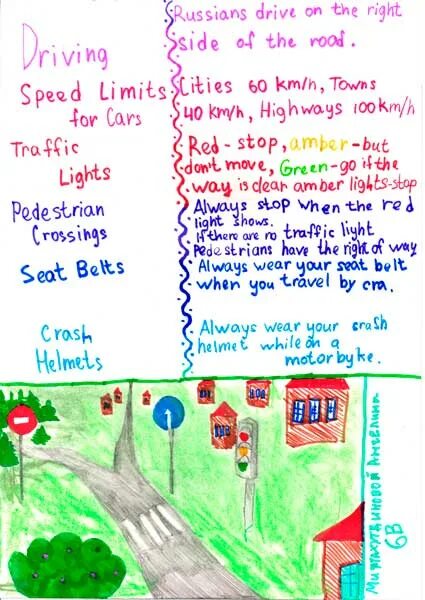 Driving
Russians drive on the right
side of the road.
Speed Limits
for Cars
Cities 60 km/h, Towns
40 km/h, Highways 100 km/h
Traffic
Lights
Red - stop, amber - but
don't move, Green - go if the
way is clear amber lights-stop
Pedestrian
Crossings
Always stop when the red
light shows.
If there are no traffic light
Pedestrians have the right of way
Seat Belts
Always wear your seat belt
when you travel by cra.
Crash
Helmets
Always wear your crash
helmet while on a
motorbyke.
Ангелины
6В